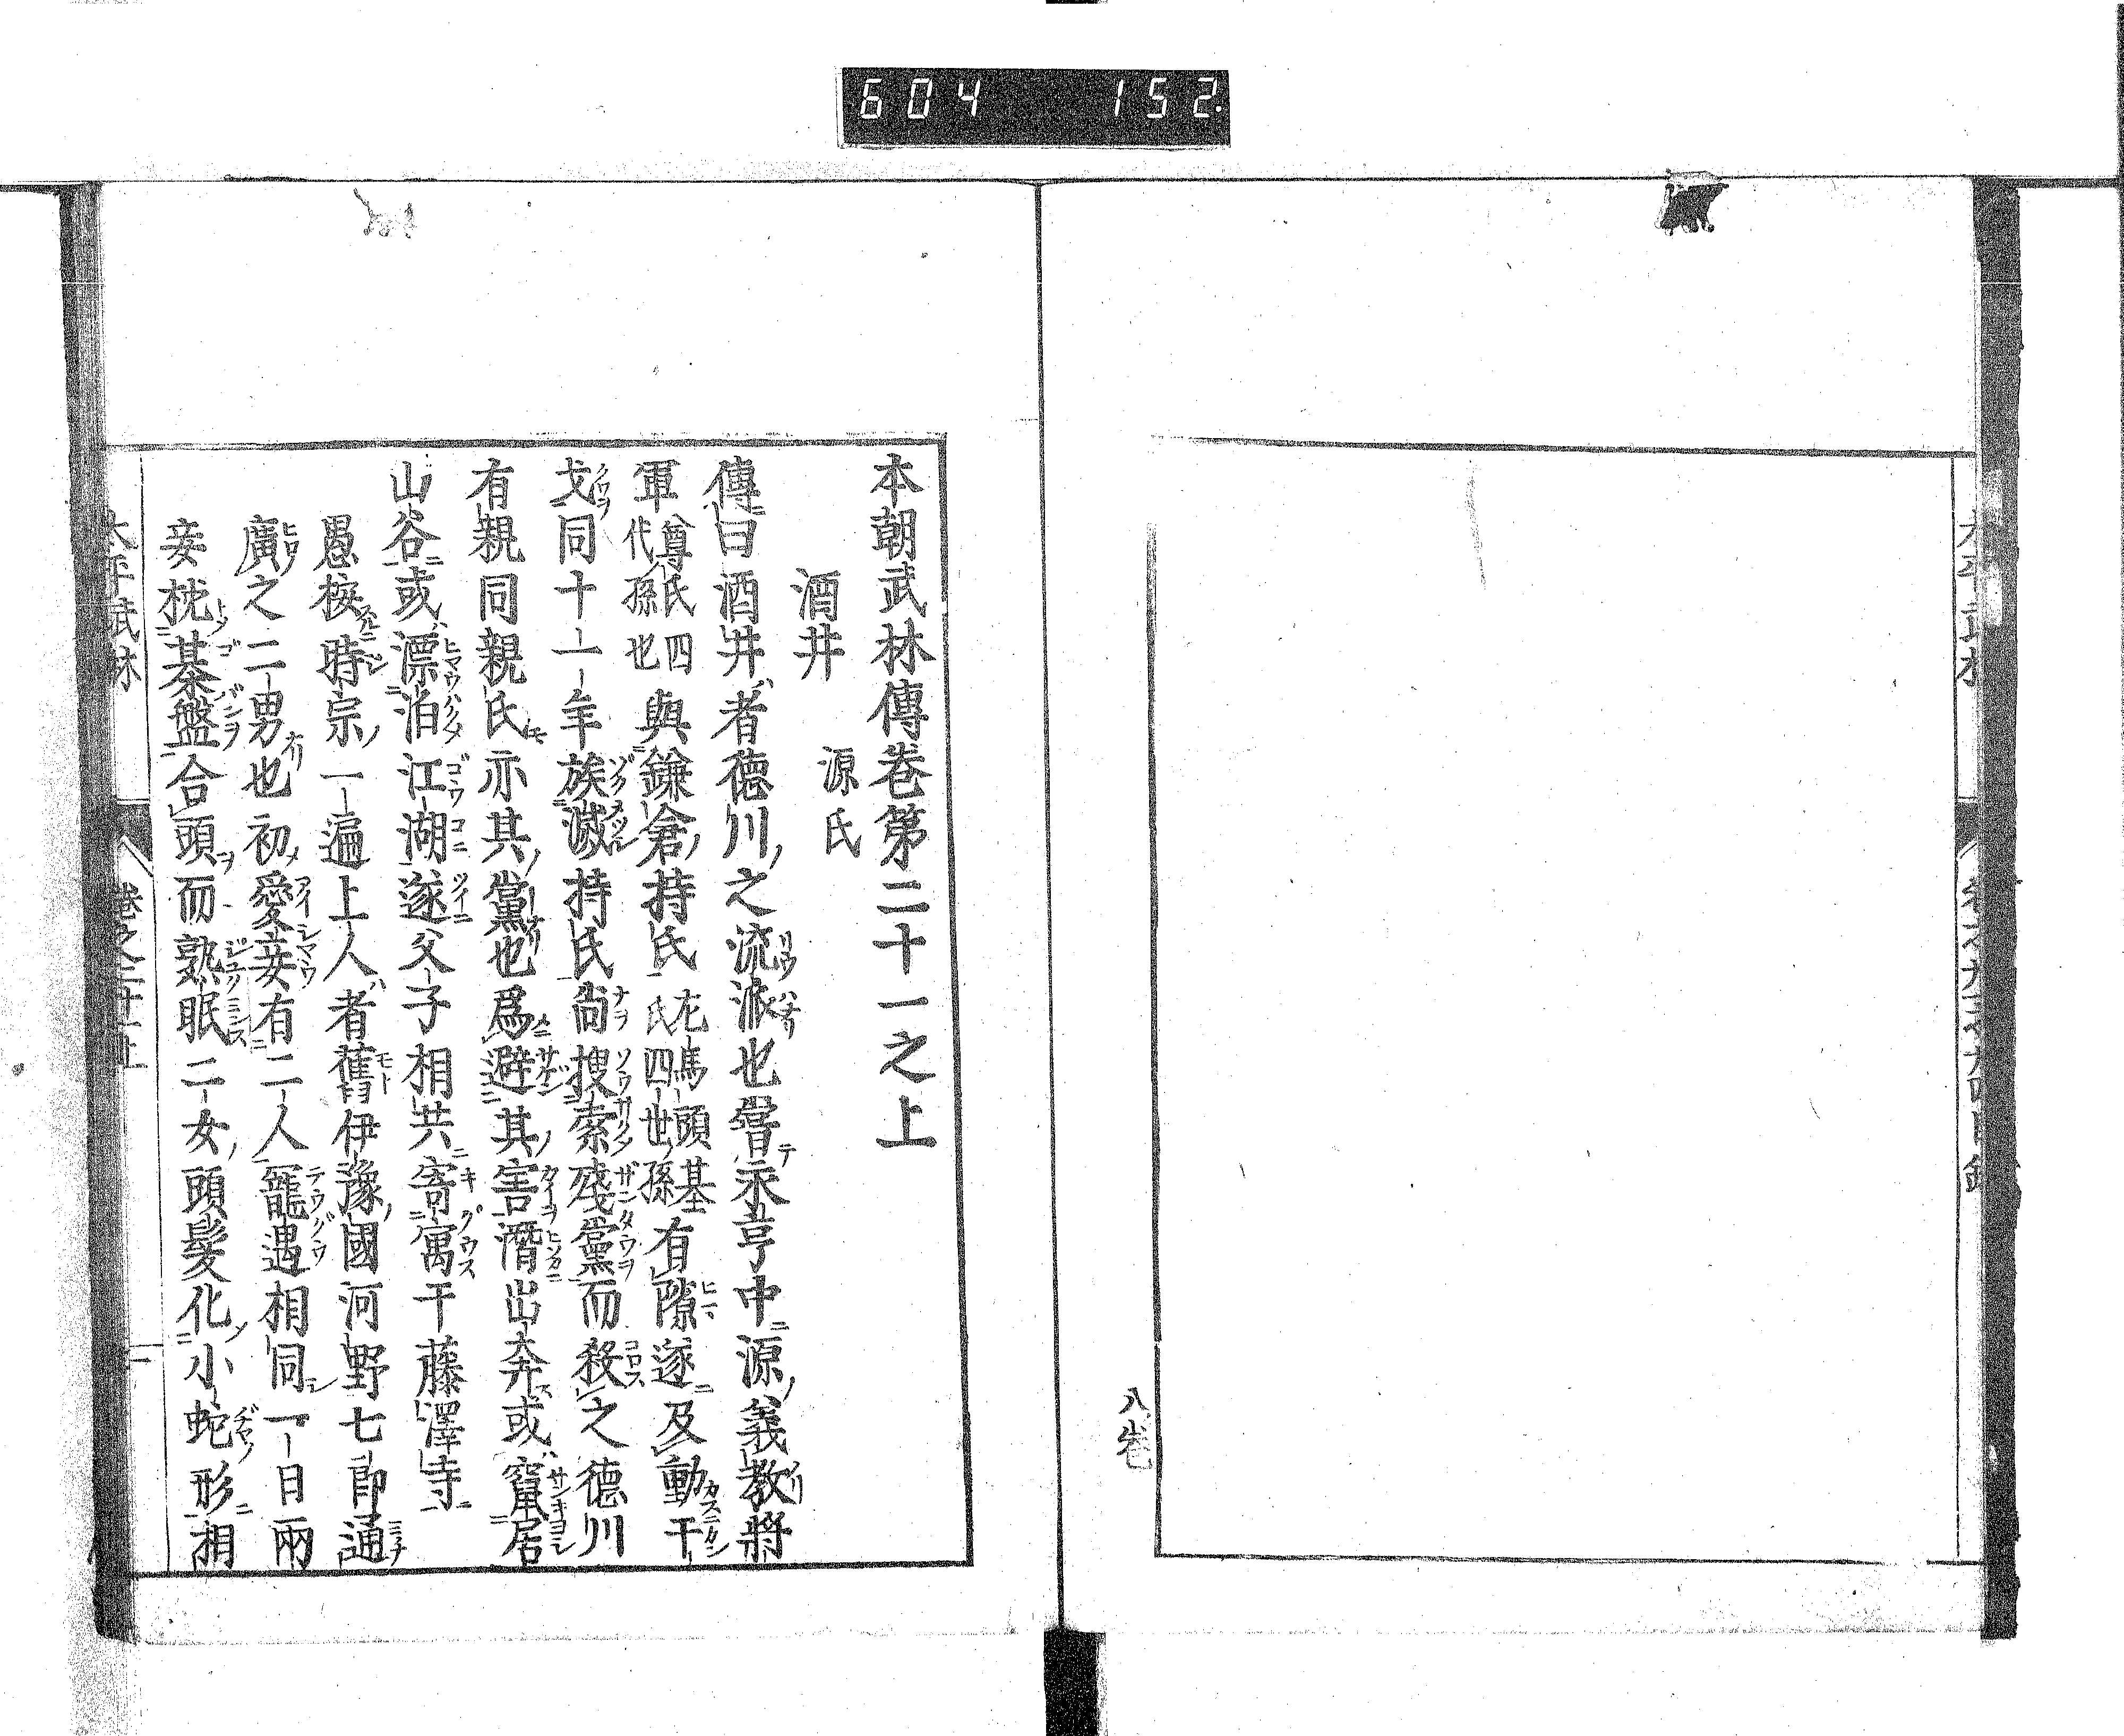 604 152
八巻
本朝武林傳巻第二十一之上
酒井 源氏
傳曰酒井者德川之流派也嘗永享中源義敎將
軍尊氏四代孫也與鎌倉持氏左馬頭基氏四世孫有隙遂及動干
戈同十一年族滅持氏尙搜索殘黨而殺之德川
有親同親氏亦其黨也爲避其害潛出奔或竄居
山谷或漂泊江湖遂父子相共寄寓于藤澤寺
愚按時宗一遍上人者舊伊豫國河野七郎通
廣之二男也初愛妾有二人寵遇相同一日兩
妾枕棊盤合頭而熟眠二女頭髮化小蛇形相